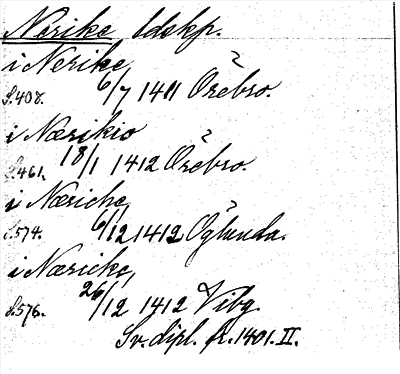 Nerike ldskp.
i Nerike,
S.408. 6/7 1411 Örebro.
i Nærikio
S.461. 18/1 1412 Örebro.
i Næriche,
S.574. 6/12 1412 Öglunda.
i Næricke,
S.576. 26/12 1412 Viby.
Sv. dipl. fr. 1401. II.